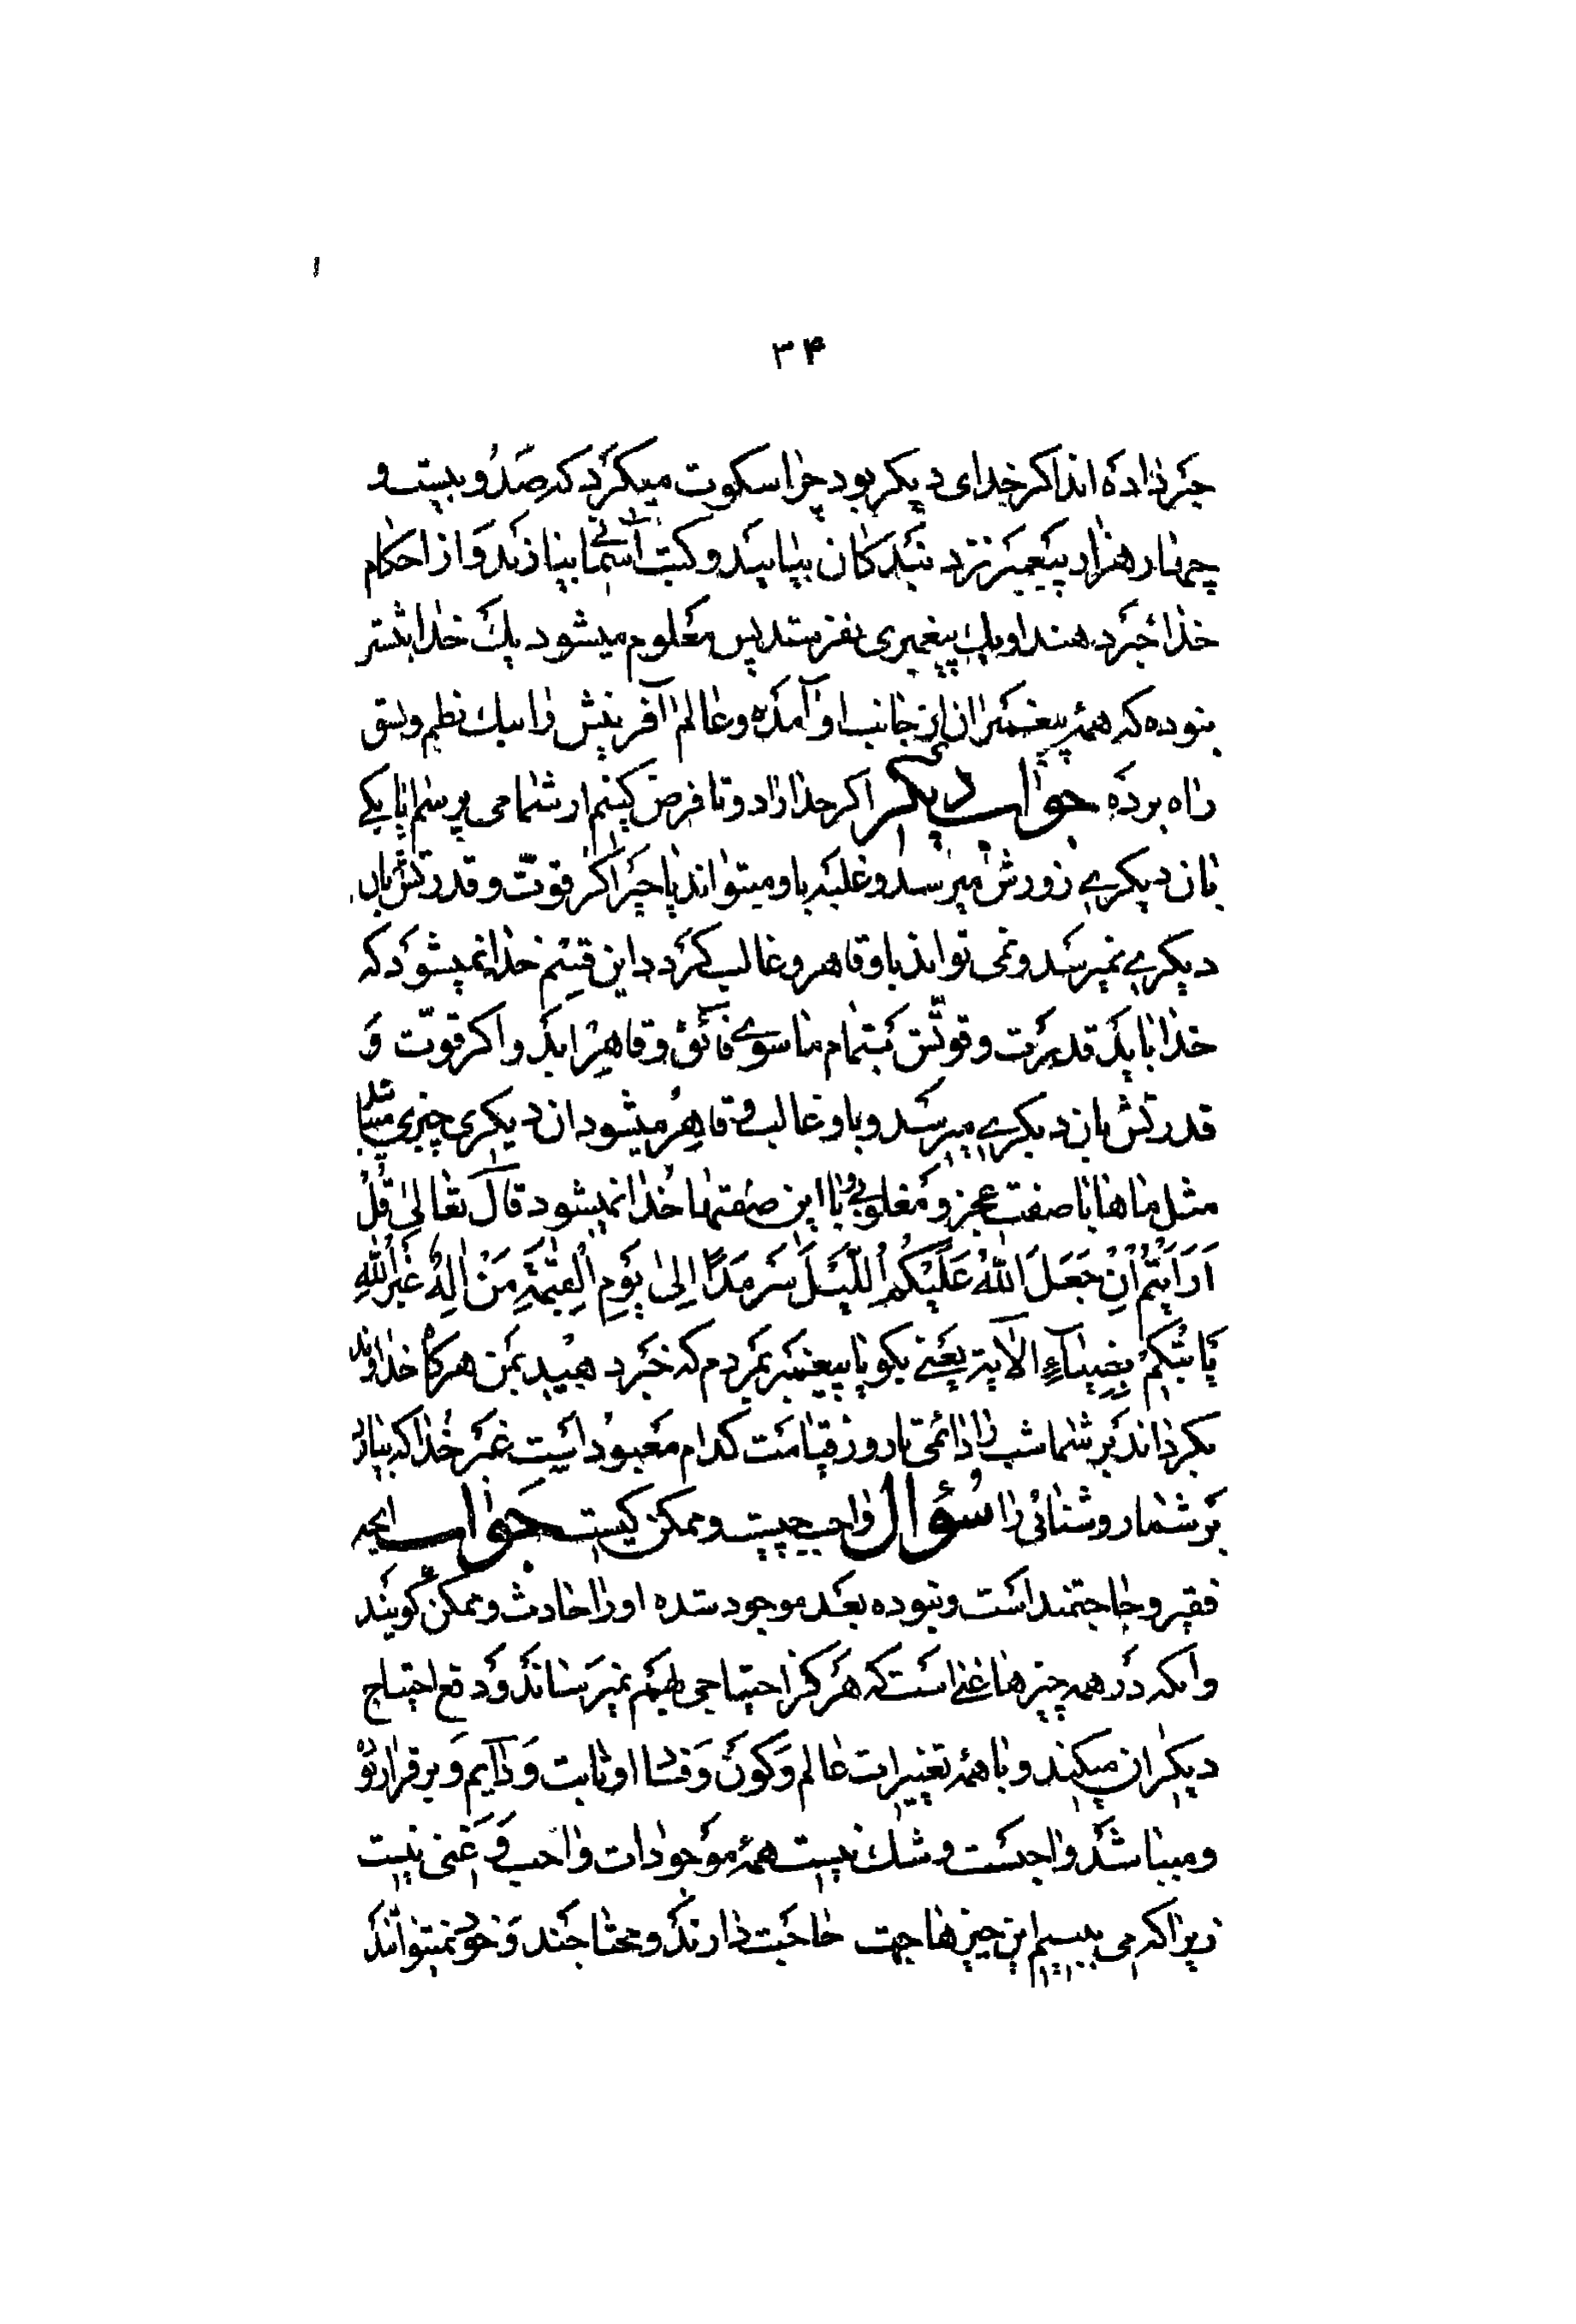 ۳۴
خبر داده اند اکر خدای دیکر بود چرا سکوت میکرد که صد و بیست و
چهار هزار پیغمبر نزد بندکان بیایند و کتب آسمانی بیاورند و از احکام
خدا خبر دهند او یک پیغمبری نفرستد پس معلوم میشود یک خدا بیشتر
نبوده که همه پیغمبران از جانب او آمده و عالم آفرینش را بیک نظم و نسق
راه برده جواب دیکر اکر خدا را دو تا فرض کنیم از شما می پرسم ایا یکی
بان دیکری زورش میرسد و غلبه باو میتواند یا خیر اکر قوّت و قدرتش بان
دیکری نمیرسد و نمی تواند باو قاهر و غالب کردد این قسم خدا نمیشود که
خدا باید قدرت و قوّتش بتمام ما سوی فائق و قاهر اید و اکر قوّت و
قدرتش بان دیکری میرسد و باو غالب و قاهر میشود ان دیکری چیزی میباشد
مثل ماها با صفت عجز و مغلوبی و با این صفتها خدا نمیشود قال تعالی قُلْ
اَرَاَیْتُمْ اِنْ جَعَلَ اللّٰهُ عَلَیْکُمُ اللَّیْلَ سَرْمَدًا اِلیٰ یَوْمِ الْقِیٰمَةِ مَنْ اِلٰهٌ غَیْرُ اللّٰهِ
یَاْتیکُمْ بِضِیٰآءٍ الآیة یعنی بکو یا پیغمبر بمردم که خبر دهید بمن هرکاه خداوند
بکرداند بر شما شب را دائمی تا روز قیامت کدام معبود است غیر خدا که بیارد
بر شما روشنائی را سُؤال واجب چیست و ممکن کیست جواب انچه
فقیر و حاجتمند است و نبوده بعد موجود شده او را حادث و ممکن کویند
وانکه در همه چیزها غنی است که هرکز احتیاجی بهم نمیرساند و دفع احتیاج
دیکران میکند و با همه تغییرات عالم و کون و فساد او ثابت و دایم و برقرار بوده
و میباشد واجبست و شک نیست همه موجودات واجب و غنی نیست
زیرا که می بینیم این چیزها جهت حاجت دارند و محتاجند و خود نمیتوانند